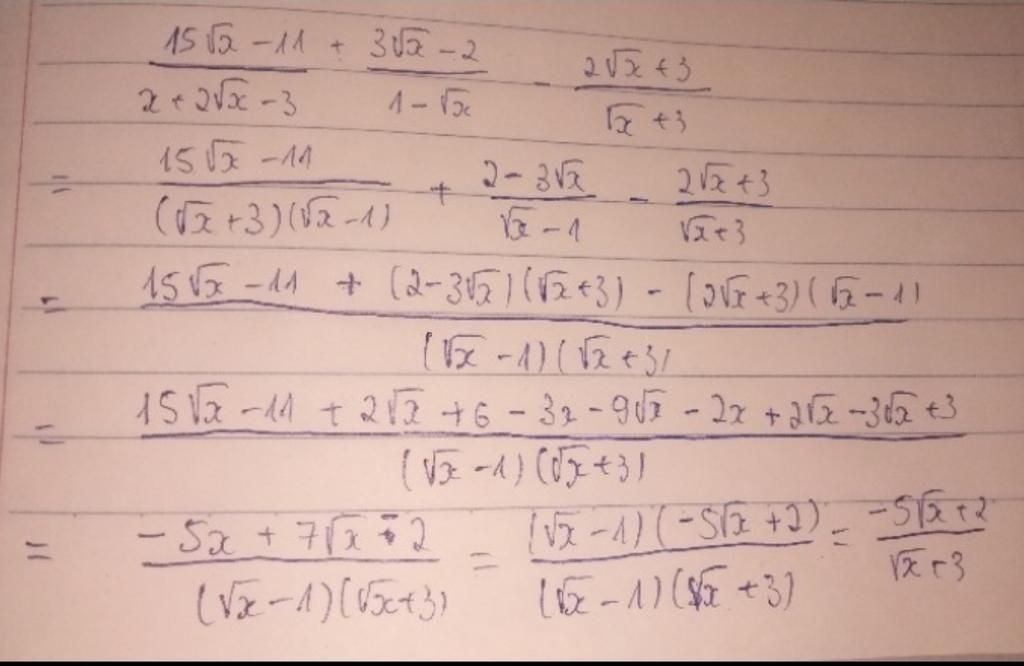 (15√x - 11)/(x + 2√x - 3) + (3√x - 2)/(1 - √x) - (2√x + 3)/(√x + 3)
= (15√x - 11)/((√x + 3)(√x - 1)) + (2 - 3√x)/(√x - 1) - (2√x + 3)/(√x + 3)
= (15√x - 11 + (2 - 3√x)(√x + 3) - (2√x + 3)(√x - 1))/((√x - 1)(√x + 3))
= (15√x - 11 + 2√x + 6 - 3x - 9√x - 2x + 2√x - 3√x + 3)/((√x - 1)(√x + 3))
= (-5x + 7√x - 2)/((√x - 1)(√x + 3)) = ((√x - 1)(-5√x + 2))/((√x - 1)(√x + 3)) = (-5√x + 2)/(√x + 3)